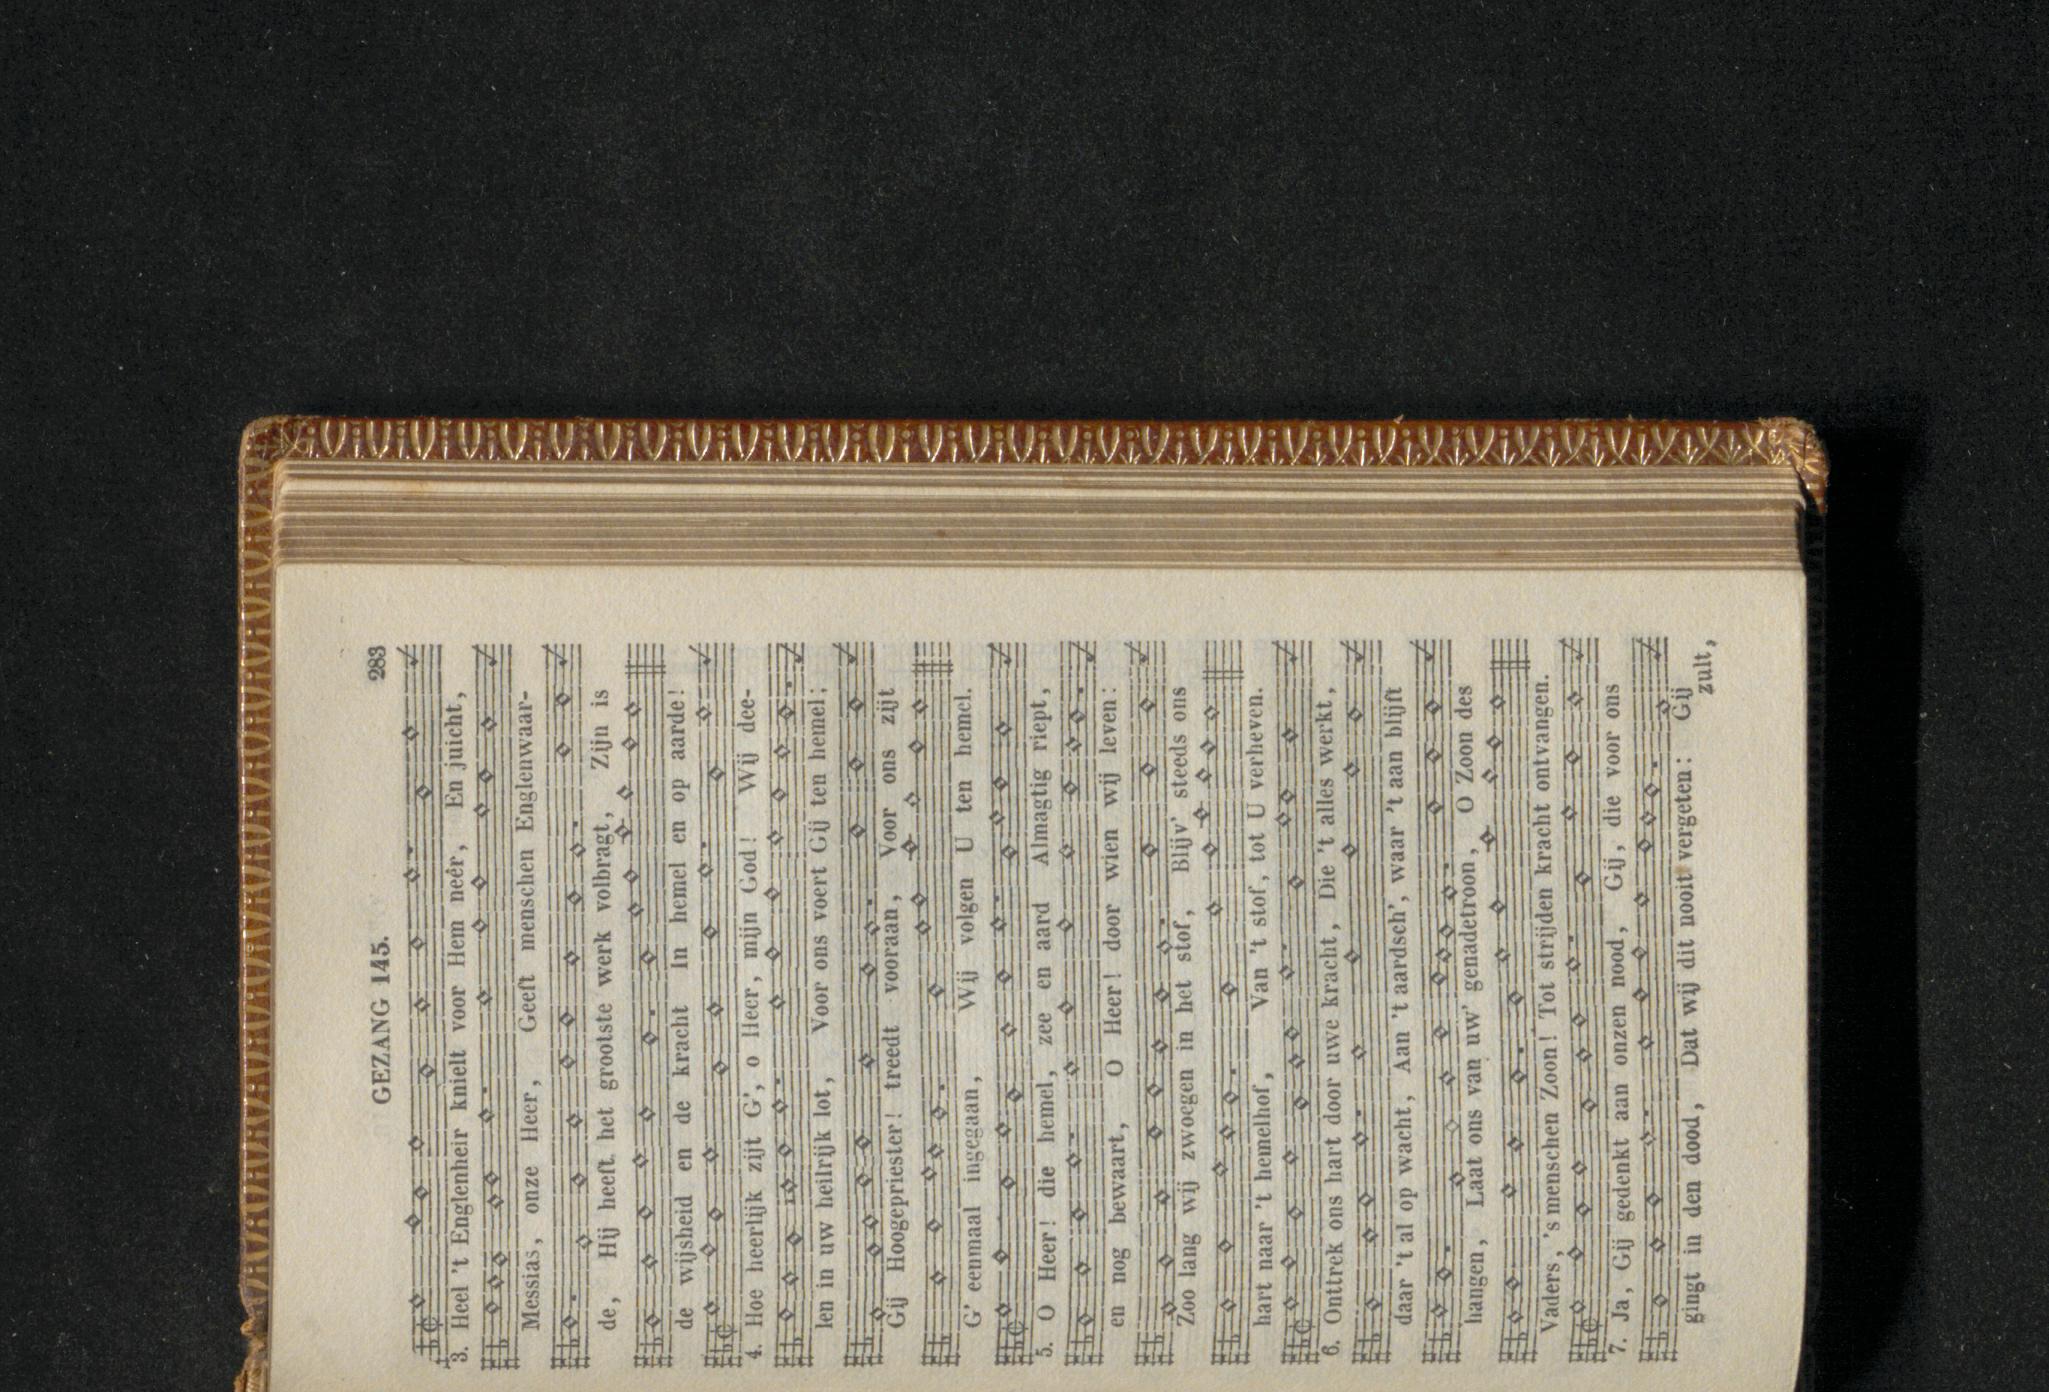 GEZANG 145. 283
3. Heel 't Englenheir knielt voor Hem neêr, En juicht,
Messias, onze Heer, Geeſt menschen Englenwaar-
de, Hij heeft het grootste werk volbragt, Zijn is
de wijsheid en de kracht In hemel en op aarde!
4. Hoe heerlijk zijt G', o Heer, mijn God! Wij dee-
len in uw heilrijk lot, Voor ons voert Gij ten hemel;
Gij Hoogepriester! treedt vooraan, Voor ons zijt
G' eenmaal ingegaan, Wij volgen U ten hemel.
5. O Heer! die hemel, zee en aard Almagtig riept,
en nog bewaart, O Heer! door wien wij leven:
Zoo lang wij zwoegen in het stof, Blijv' steeds ons
hart naar 't hemelhof, Van 't stof, tot U verheven.
6. Onttrek ons hart door uwe kracht, Die 't alles werkt,
daar 't al op wacht, Aan 't aardsch', waar 't aan blijft
hangen, Laat ons van uw' genadetroon, O Zoon des
Vaders, 's menschen Zoon! Tot strijden kracht ontvangen.
7. Ja, Gij gedenkt aan onzen nood, Gij, die voor ons
gingt in den dood, Dat wij dit nooit vergeten: Gij
zult,